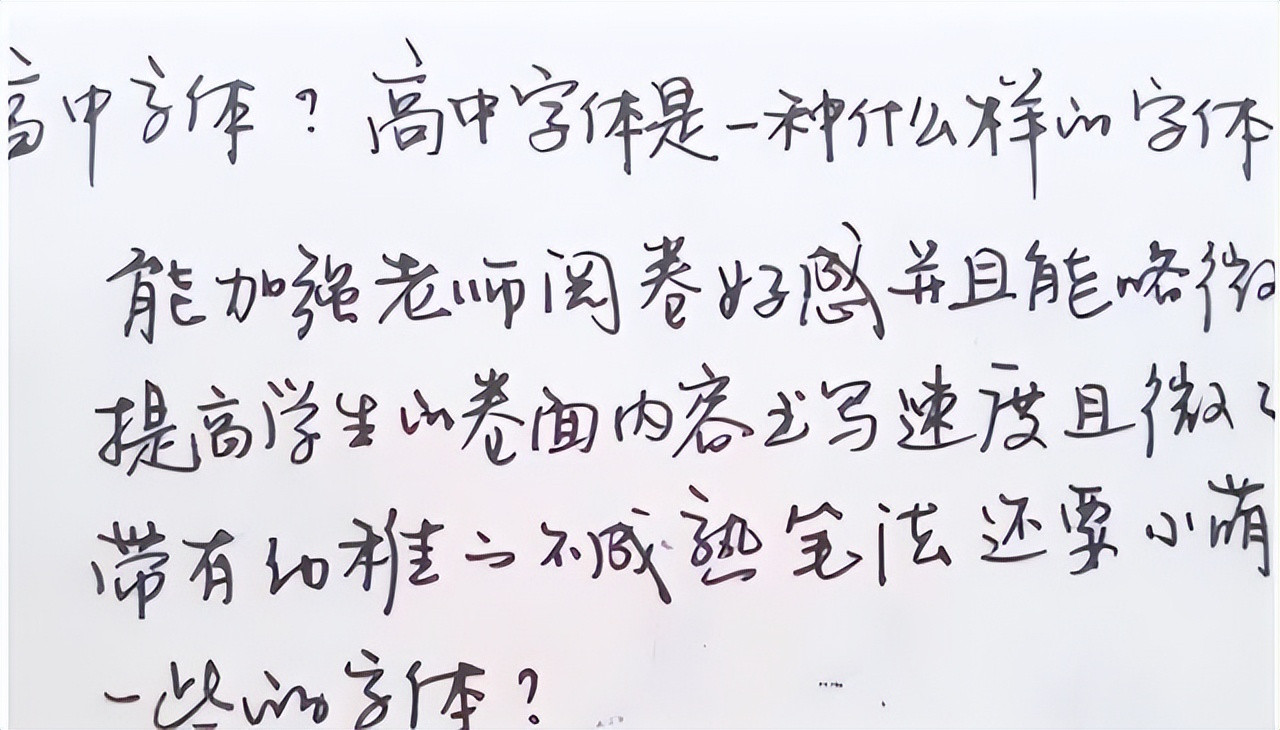 高中字体？高中字体是一种什么样的字体
能加强老师阅卷好感并且能略微
提高学生的卷面内容书写速度且微
带有幼稚之不成熟笔法还要小萌
一些的字体？